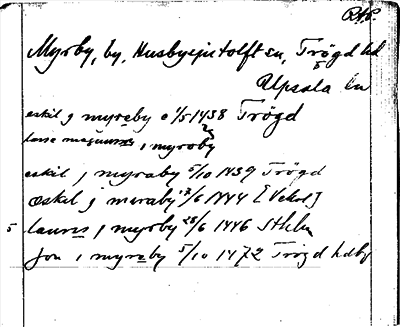 RAP.
Myrby, by, Husbysjutolft sn, Trögd hd
Upsala ln
eskil j myraby o 1/5 1438 Trögd
lasse magnusson i myroby
eskil j myraby 5/10 1439 Trögd
øskil j meraby 17/6 1444 [Veker]
5 laurns j myrby 28/6 1446 Sthlm
Jon i myraby 5/10 1472 Trögd hdby